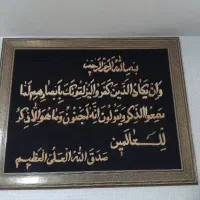 بسم الله الرحمن الرحيم
وان يكاد الذين كفروا ليزلقونك بابصارهم لما
سمعوا الذكر ويقولون انه لمجنون وما هو الا ذكر
للعالمين
صدق الله العلي العظيم